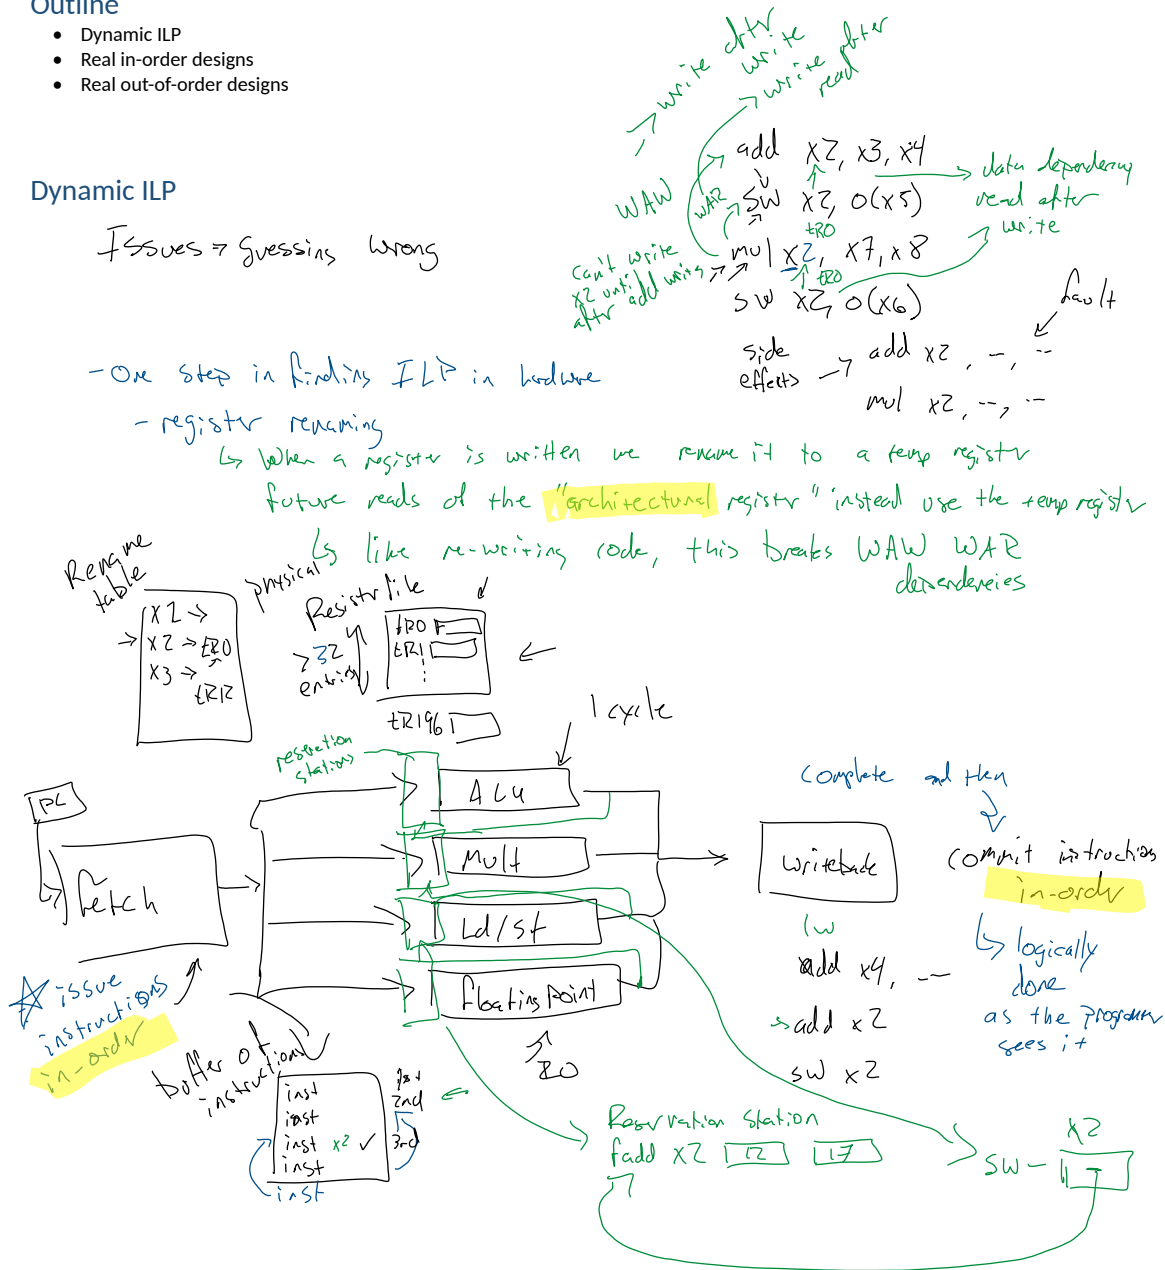 Outline
• Dynamic ILP
• Real in-order designs
• Real out-of-order designs
write after write
write after read
Dynamic ILP
Issues → guessing wrong
add x2, x3, x4
sw x2, 0(x5)
tR0
mul x2, x7, x8
tR0
sw x2, 0(x6)
WAW
WAR
can't write
x2 until
after add writes
data dependency
read after
write
fault
side
effects → add x2, --, --
mul x2, --, --
- One step in finding ILP in hardware
- register renaming
↳ When a register is written we rename it to a temp register
future reads of the "architectural register" instead use the temp register
↳ like re-writing code, this breaks WAW WAR
dependencies
Rename
table
x2 →
x2 → tR0
x3 →
tR12
physical
Register file
>32
entries
tR0
tR1
⋮
tR196
1 cycle
reservation
stations
PC
fetch
ALU
Mult
Ld/St
floating point
20
writeback
complete and then
commit instructions
in-order
↳ logically
done
as the programmer
sees it
lw
add x4, --
→ add x2
sw x2
☆ issue
instructions
in-order
buffer of
instructions
inst
inst
inst x2 ✓
inst
inst
1st
2nd
3rd
Reservation Station
fadd x2 12 17
x2
sw -